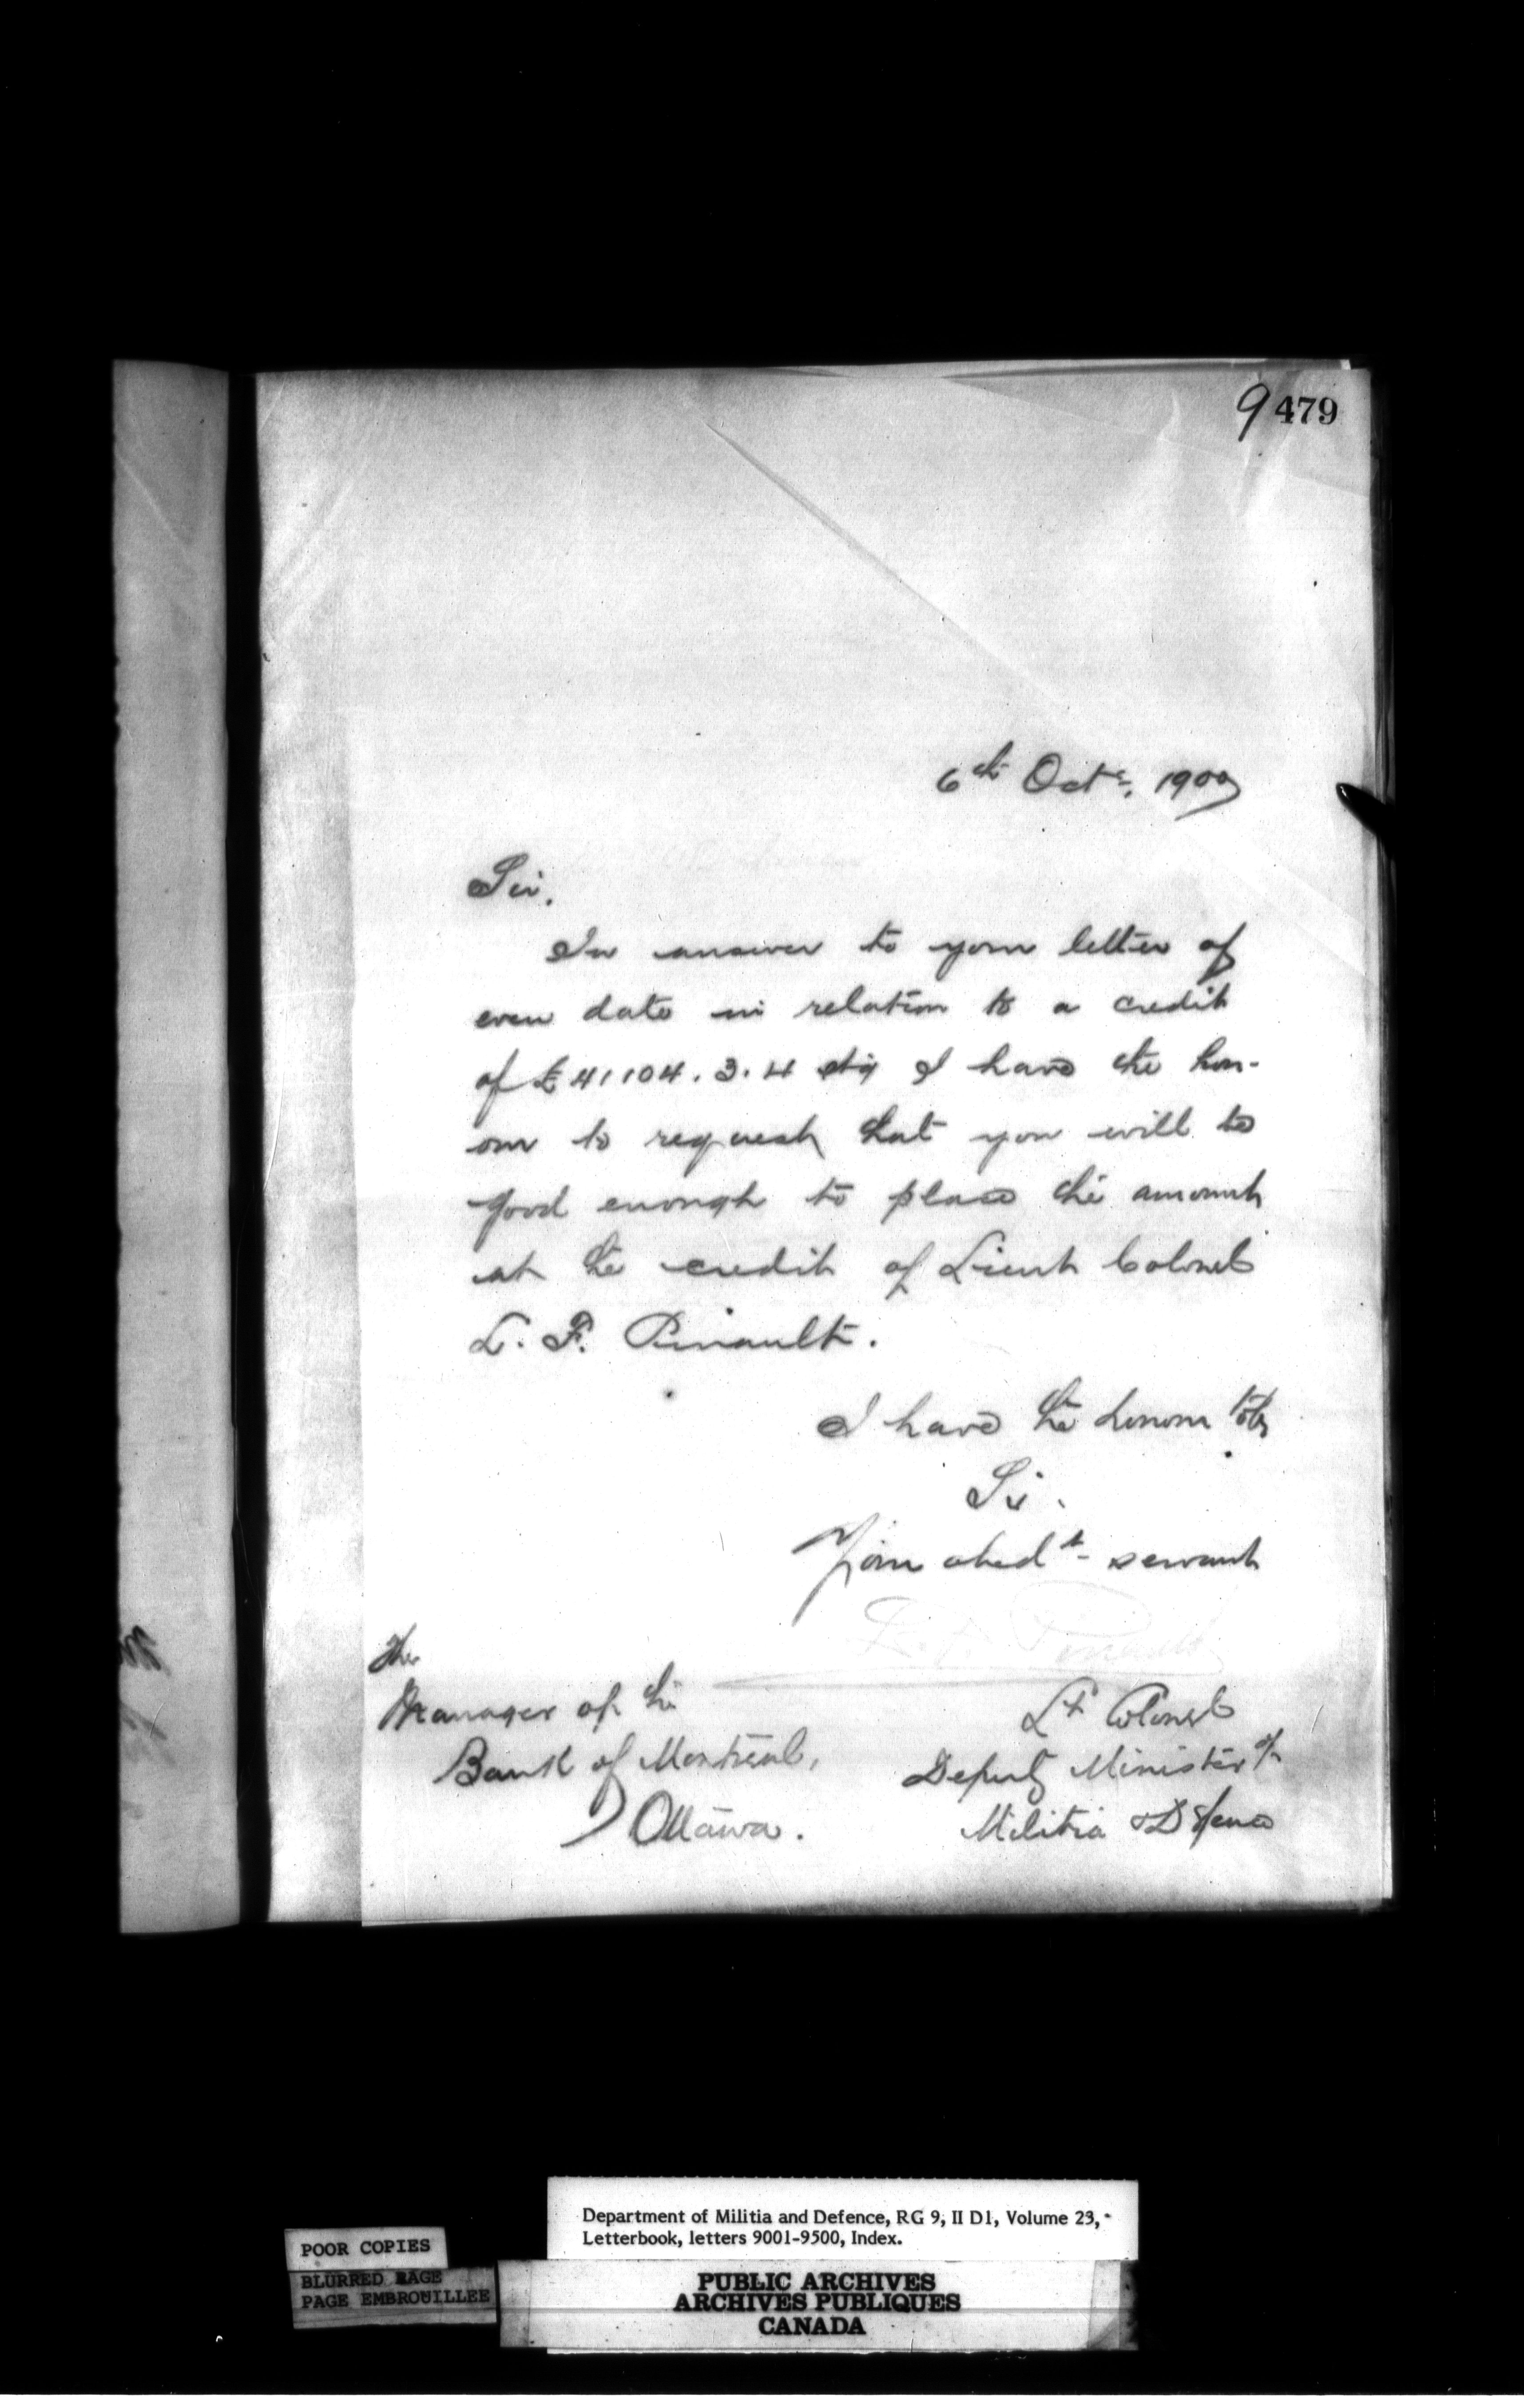 9479
6th Octr. 1900
Sir,
In answer to your letter of
even date in relation to a credit
of £41104.3.4 stg I have the hon-
our to request that you will be
good enough to place the amount
at the credit of Lieut Colonel
L. F. Pinault.
I have the honour to be
Sir.
Your obedt servant
L. F. Pinault
Lt Colonel
Deputy Minister of
Militia & Defence
The
Manager of the
Bank of Montreal,
Ottawa.
Department of Militia and Defence, RG 9, II D1, Volume 23,
Letterbook, letters 9001-9500, Index.
POOR COPIES
BLURRED PAGE
PAGE EMBROUILLEE
PUBLIC ARCHIVES
ARCHIVES PUBLIQUES
CANADA